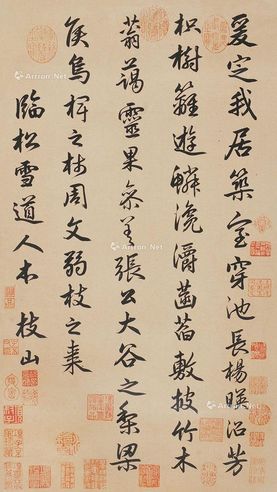 爰定我居築室穿池長楊暎沼芳
枳樹籬遊鱗瀺灂菡萏敷披竹木
蓊藹靈果參差張公大谷之梨梁
侯烏椑之柿周文弱枝之棗
臨松雪道人本 枝山
Artron.Net
Artron.Net
Artron.Net
Artron.Net